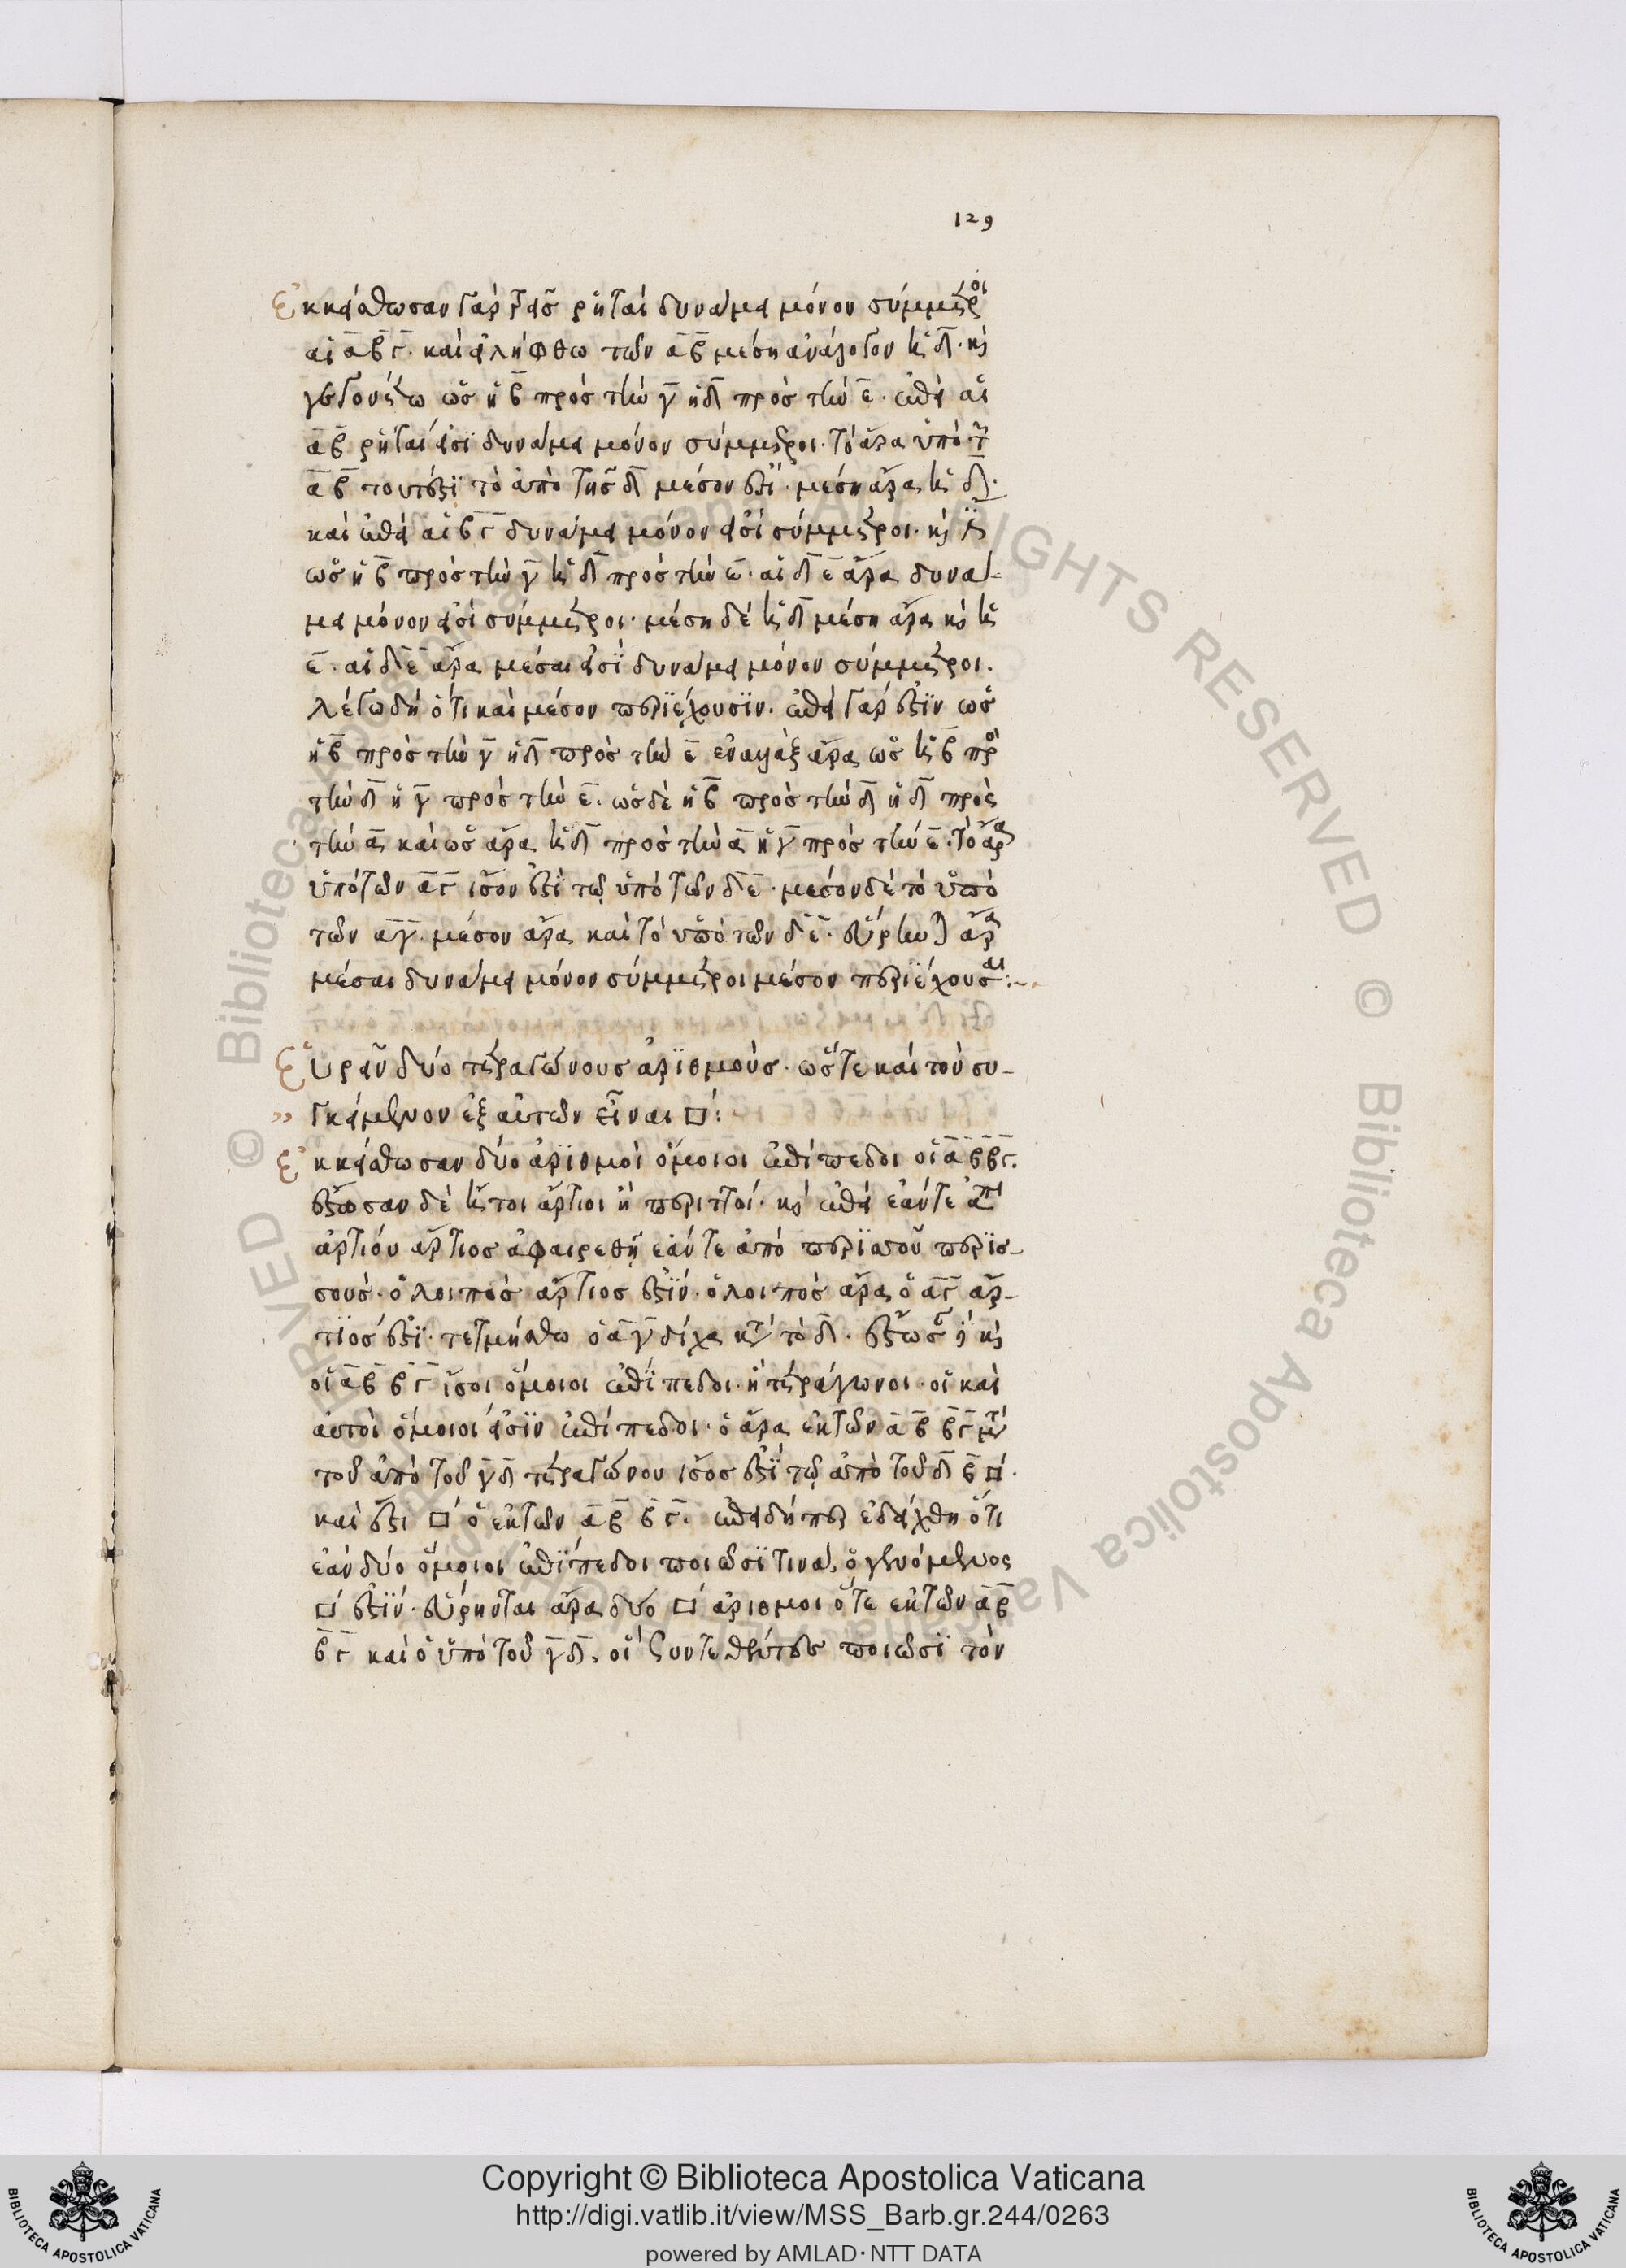 129
Ἐκκείσθωσαν γὰρ τρεῖς ῥηταὶ δυνάμει μόνον σύμμετροι
αἱ α β γ. καὶ εἰλήφθω τῶν α β μέση ἀνάλογον ἡ δ. καὶ
γεγονέτω ὡς ἡ β πρὸς τὴν γ ἡ δ πρὸς τὴν ε. ἐπεὶ αἱ
α β ῥηταί εἰσι δυνάμει μόνον σύμμετροι. τὸ ἄρα ὑπὸ τῶν
α β τουτέστι τὸ ἀπὸ τῆς δ μέσον ἐστί. μέση ἄρα ἡ δ.
καὶ ἐπεὶ αἱ β γ δυνάμει μόνον εἰσὶ σύμμετροι. καί ἐστιν
ὡς ἡ β πρὸς τὴν γ ἡ δ πρὸς τὴν ε. αἱ δ ε ἄρα δυνά-
μει μόνον εἰσὶ σύμμετροι. μέση δὲ ἡ δ μέση ἄρα καὶ ἡ
ε. αἱ δ ε ἄρα μέσαι εἰσὶ δυνάμει μόνον σύμμετροι.
λέγω δὴ ὅτι καὶ μέσον περιέχουσιν. ἐπεὶ γάρ ἐστιν ὡς
ἡ β πρὸς τὴν γ ἡ δ πρὸς τὴν ε ἐναλλὰξ ἄρα ὡς ἡ β πρὸς
τὴν δ ἡ γ πρὸς τὴν ε. ὡς δὲ ἡ β πρὸς τὴν δ ἡ δ πρὸς
τὴν α καὶ ὡς ἄρα ἡ δ πρὸς τὴν α ἡ γ πρὸς τὴν ε. τὸ ἄρα
ὑπὸ τῶν α γ ἴσον ἐστὶ τῷ ὑπὸ τῶν δ ε. μέσον δὲ τὸ ὑπὸ
τῶν α γ. μέσον ἄρα καὶ τὸ ὑπὸ τῶν δ ε. εὕρηνται ἄρα
μέσαι δυνάμει μόνον σύμμετροι μέσον περιέχουσαι:~
Εὑρεῖν δύο τετραγώνους ἀριθμούς. ὥστε καὶ τὸν συ-
γκείμενον ἐξ αὐτῶν εἶναι □:
Ἐκκείσθωσαν δύο ἀριθμοὶ ὅμοιοι ἐπίπεδοι οἱ α β β γ.
ἔστωσαν δὲ ἤτοι ἄρτιοι ἢ περιττοί. καὶ ἐπεὶ ἐάν τε ἀπὸ
ἀρτίου ἄρτιος ἀφαιρεθῇ ἐάν τε ἀπὸ περισσοῦ περισ-
σούς. ὁ λοιπὸς ἄρτιος ἐστίν. ὁ λοιπὸς ἄρα ὁ α γ ἄρ-
τιός ἐστι. τετμήσθω ὁ α γ δίχα κατὰ τὸ δ. ἔστωσαν δὲ καὶ
οἱ α β β γ ἤτοι ὅμοιοι ἐπίπεδοι. ἢ τετράγωνοι. οἳ καὶ
αὐτοὶ ὅμοιοί εἰσιν ἐπίπεδοι. ὁ ἄρα ἐκ τῶν α β β γ μετὰ
τοῦ ἀπὸ τοῦ γ δ τετραγώνου ἴσος ἐστὶ τῷ ἀπὸ τοῦ δ β □.
καὶ ἔστι □ ὁ ἐκ τῶν α β β γ. ἐπειδήπερ ἐδείχθη ὅτι
ἐὰν δύο ὅμοιοι ἐπίπεδοι ποιῶσι τινα, ὁ γενόμενος
□ ἐστίν. εὕρηνται ἄρα δύο □ ἀριθμοὶ ὅ τε ἐκ τῶν α β
β γ καὶ ὁ ὑπὸ τοῦ γ δ, οἳ συντεθέντες ποιῶσι τὸν
Copyright © Biblioteca Apostolica Vaticana
http://digi.vatlib.it/view/MSS_Barb.gr.244/0263
powered by AMLAD·NTT DATA
BIBLIOTECA APOSTOLICA VATICANA
BIBLIOTECA APOSTOLICA VATICANA